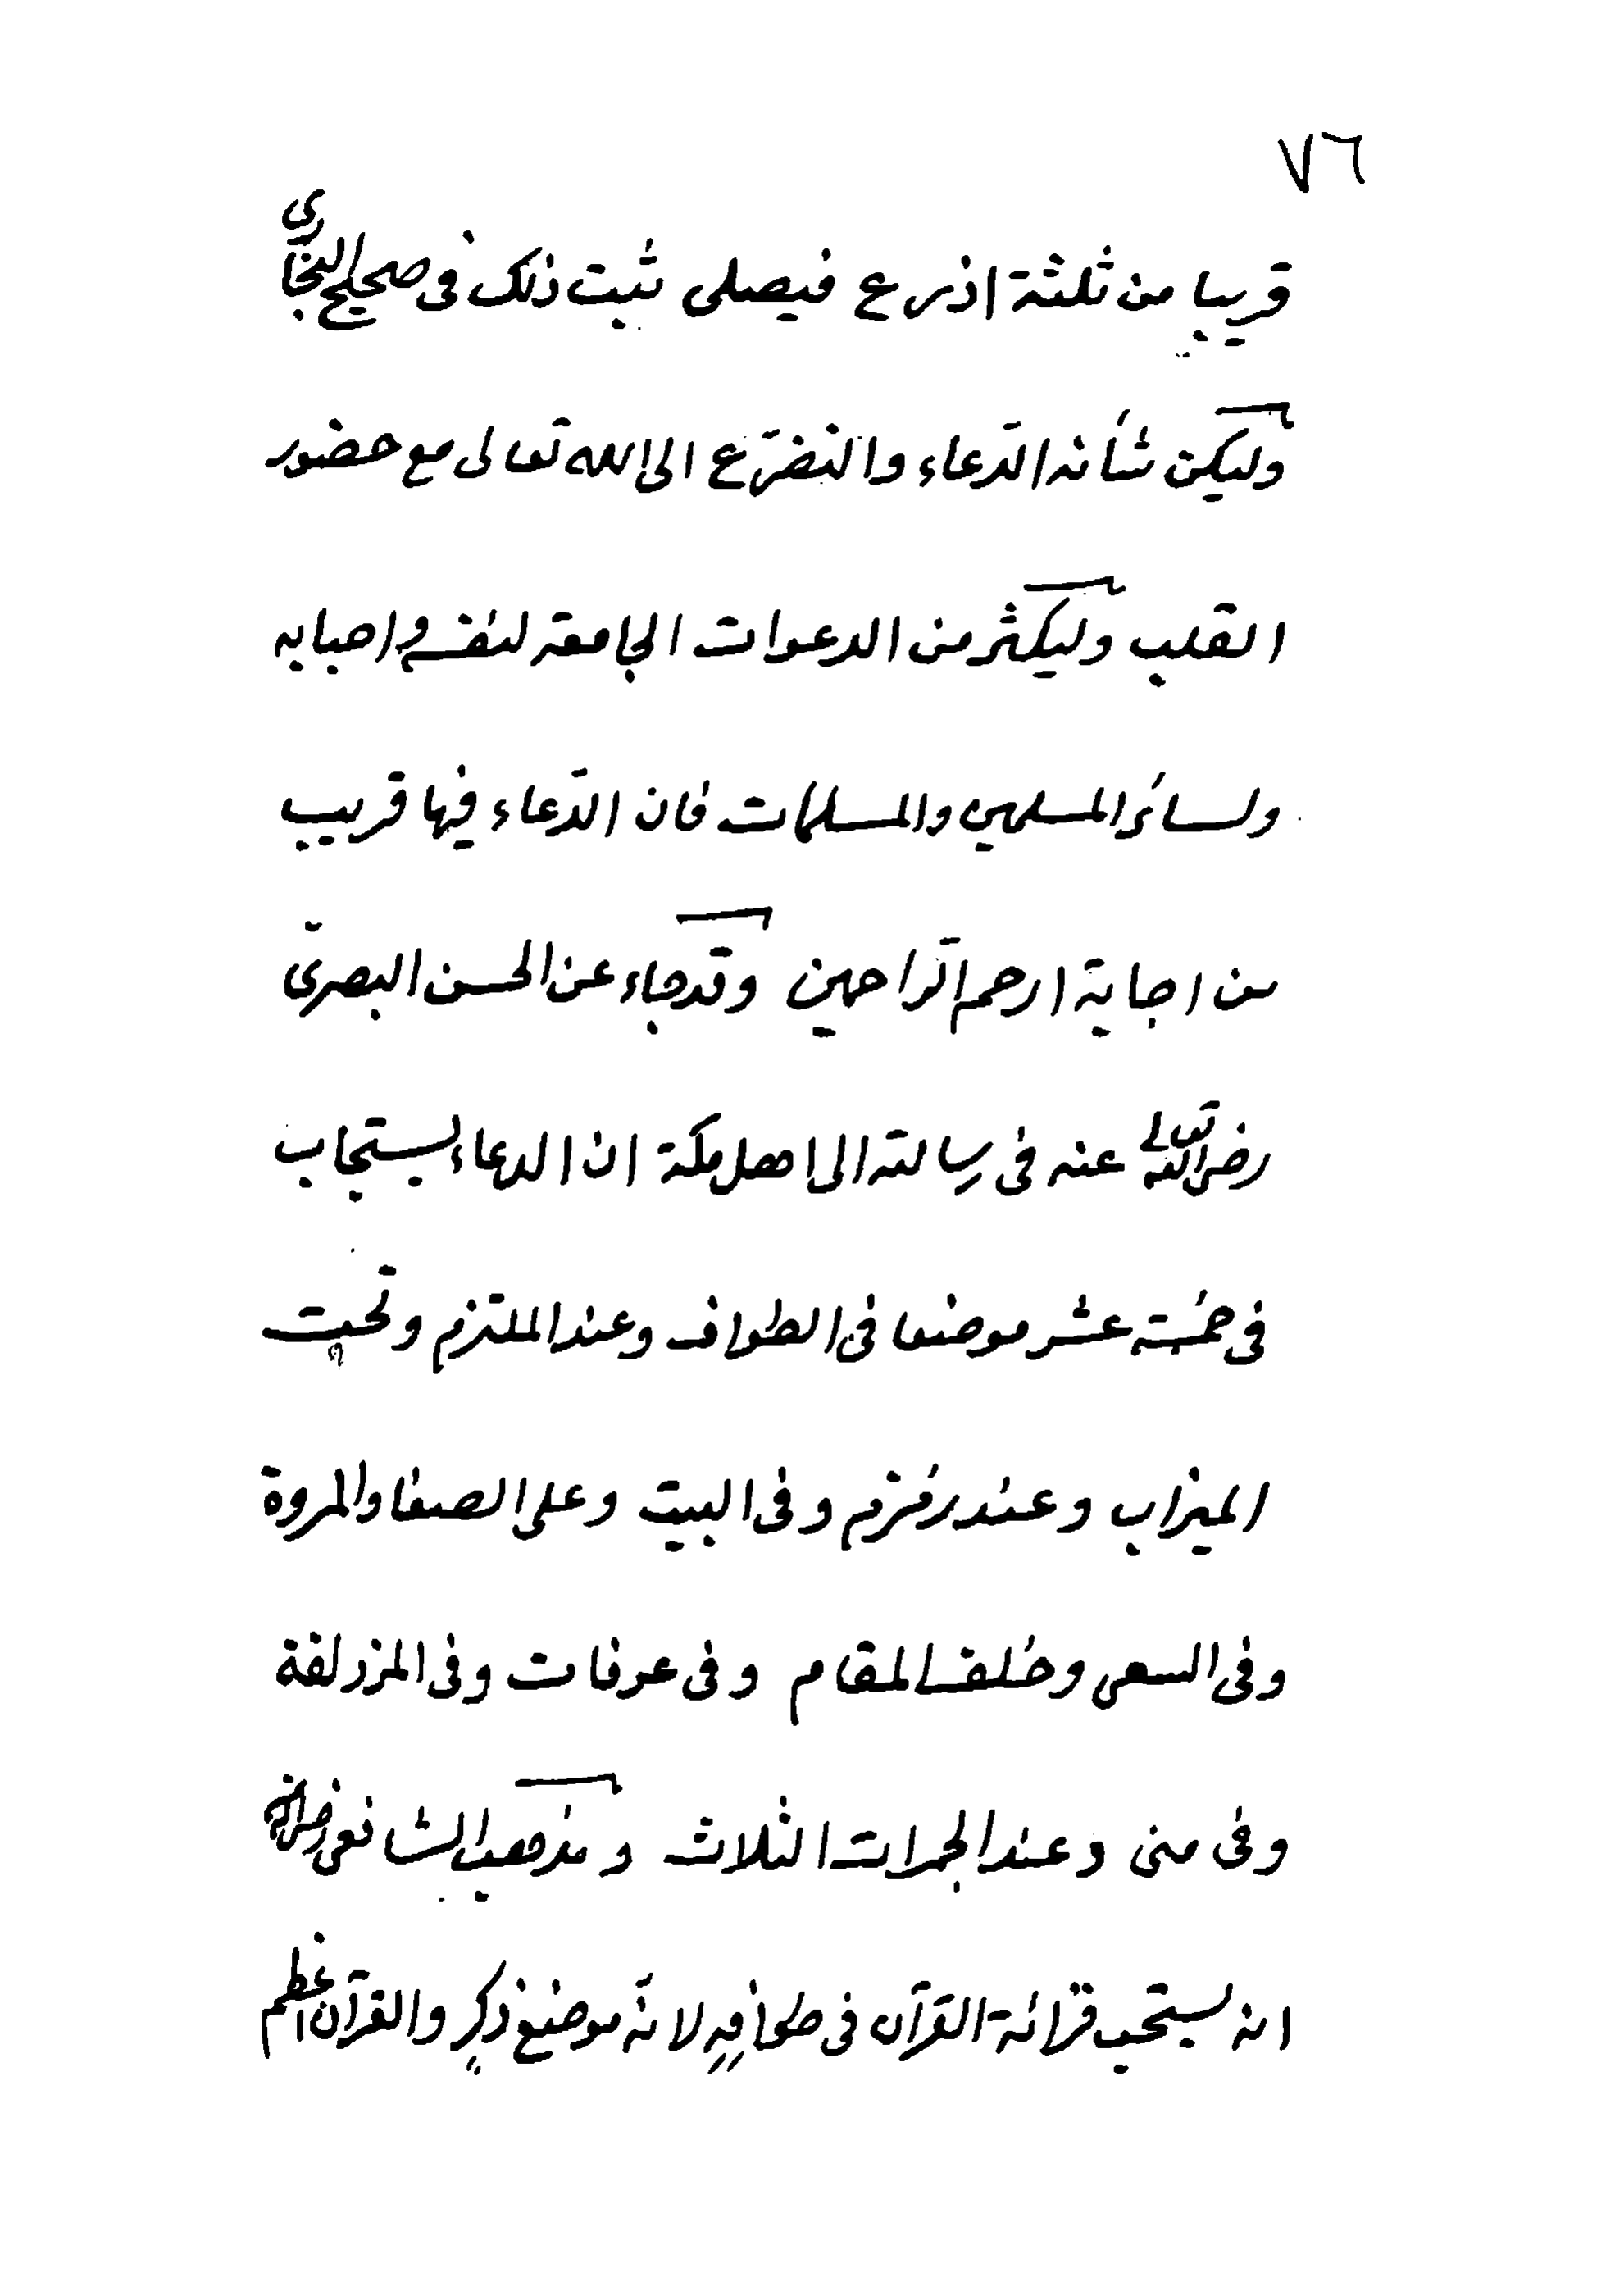 ٧٦
قريبا من ثلثة اذرع فيصلى ثبت ذلك فى صحيح البخاري
وليكن شأنه الدّعاء والتضرّع الى الله تعالى مع حضور
القلب وليكثر من الدعوات الجامعة لنفسه واحبابه
ولسائر المسلمين والمسلمات فان الدّعاء فيها قريب
من اجابة ارحم الرّاحمين وقد جاء عن الحسن البصرىّ
رضى الله تعالى عنه فى رسالته الى اهل مكة ان الدعاء يستجاب
فى خمسة عشر موضعا فى الطواف وعند الملتزم وتحت
الميزاب وعند زمزم وفى البيت وعلى الصفا والمروة
وفى السعى وخلف المقام وفى عرفات وفى المزدلفة
وفى منى وعند الجمرات الثلاث ومذهب الشافعى رضى الله
انه يستحب قرائة القرآن فى طوافِهِ لانّه موضع ذكرٍ والقرآن اعظم